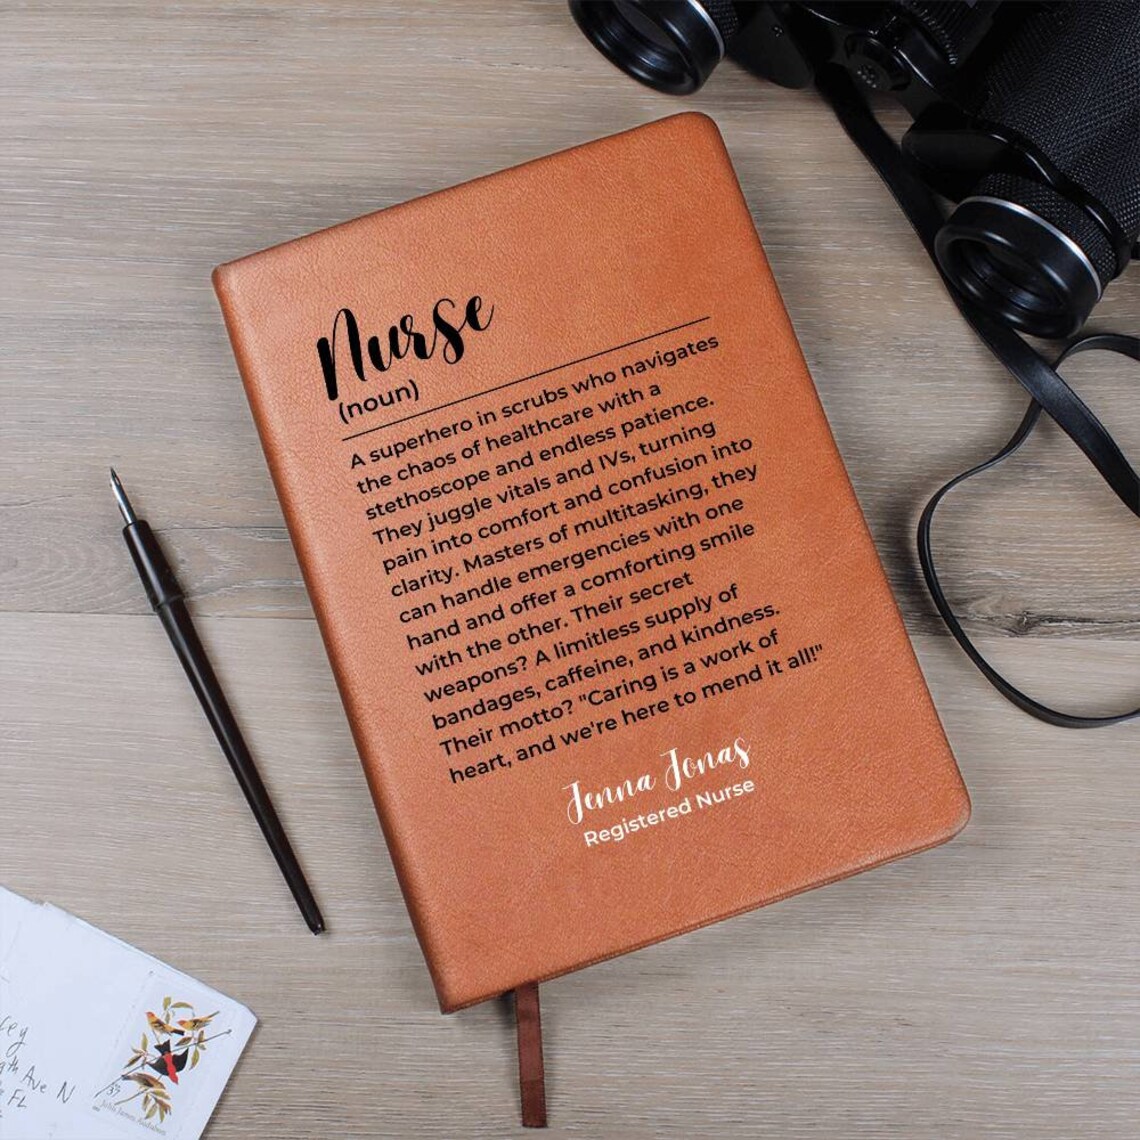 Nurse
(noun)
A superhero in scrubs who navigates
the chaos of healthcare with a
stethoscope and endless patience.
They juggle vitals and IVs, turning
pain into comfort and confusion into
clarity. Masters of multitasking, they
can handle emergencies with one
hand and offer a comforting smile
with the other. Their secret
weapons? A limitless supply of
bandages, caffeine, and kindness.
Their motto? "Caring is a work of
heart, and we're here to mend it all!"
Jenna Jonas
Registered Nurse
Ave N
FL
37